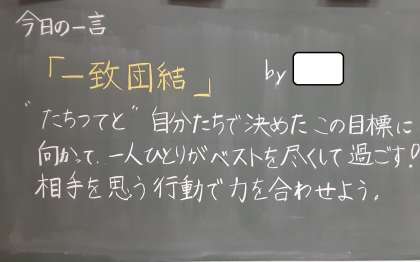 今日の一言
「一致団結」 by
"たちつてと" 自分たちで決めた この目標に
向かって、一人ひとりがベストを尽くして過ごす!
相手を思う行動で力を合わせよう。